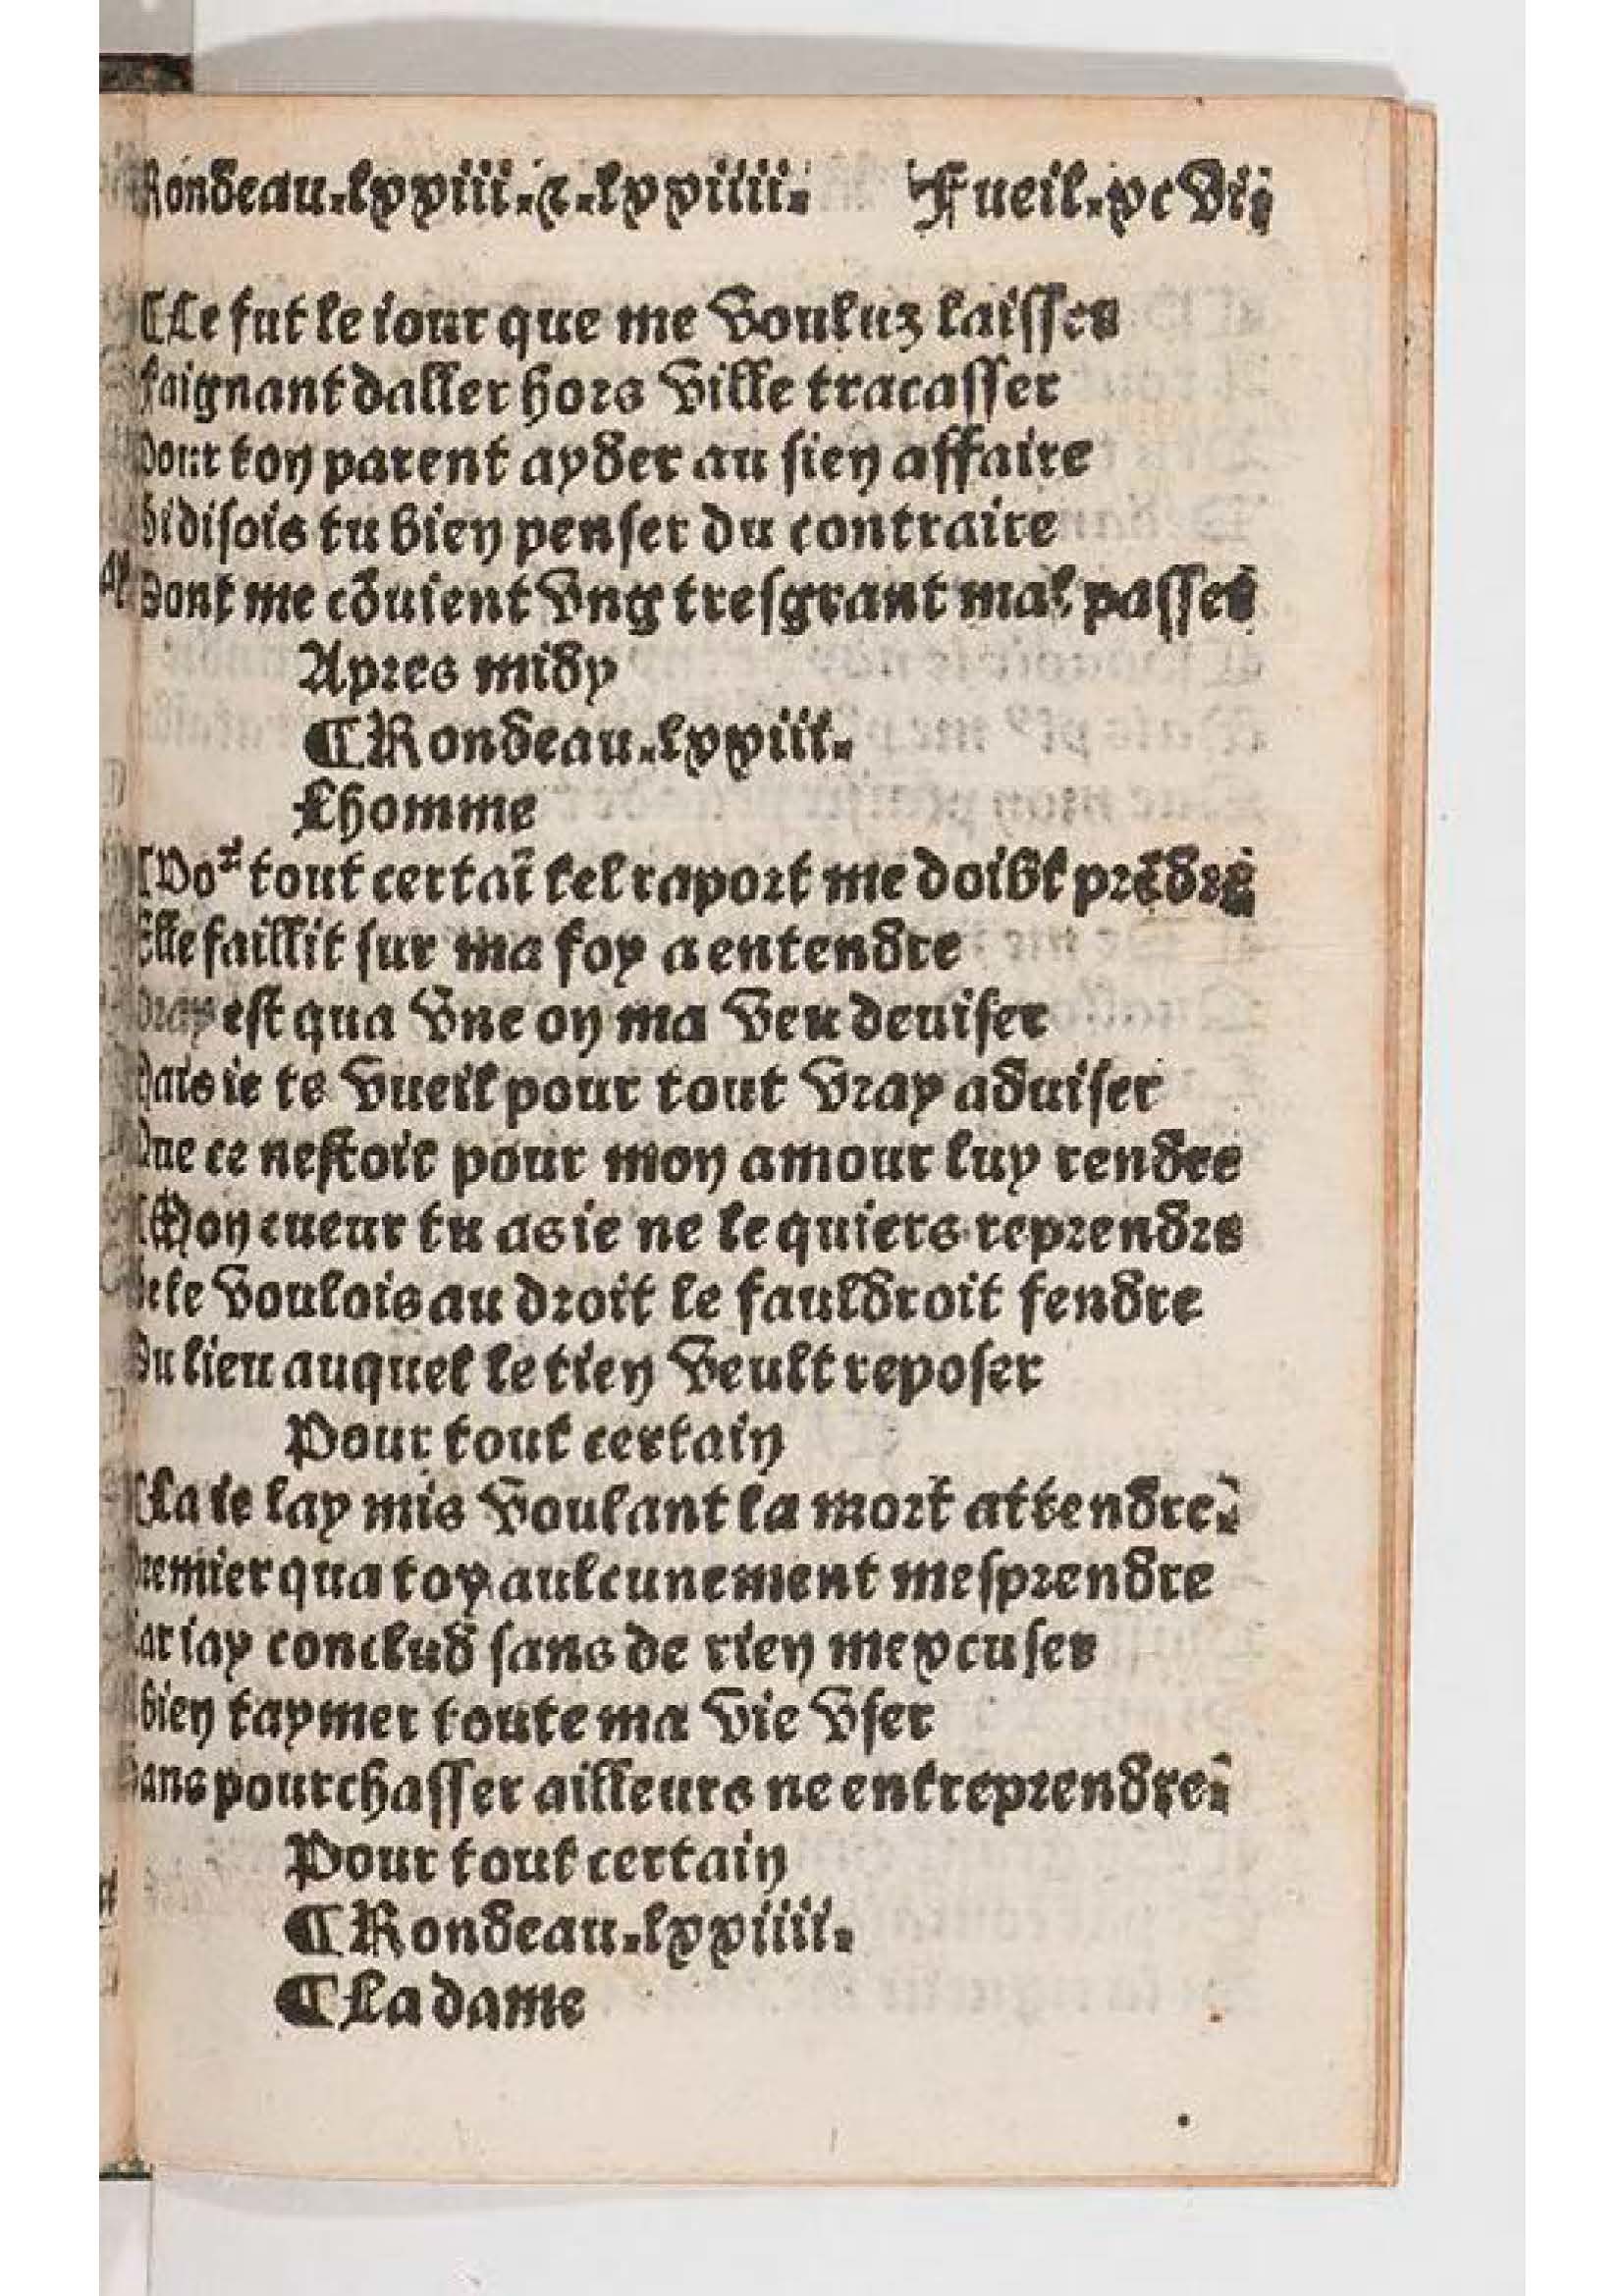 Rondeau.lxxiii.⁊.lxxiiii. Fueil.xcvii
¶Ce fut le iour que me vouluz laisser
faignant daller hors ville tracasser
Pour ton parent ayder au sien affaire
Si disois tu bien penser du contraire
Dont me cõuient vng tresgrant mal passer
Apres midy
¶Rondeau.lxxiii.
Lhomme
¶Poꝛ tout certaĩ tel raport me doibt prẽdre
Elle faillit sur ma foy a entendre
Vray est qua vne on ma veu deuiser
Mais ie te vueil pour tout vray aduiser
Que ce nestoit pour mon amour luy rendre
¶Mon cueur tu as ie ne le quiers reprendre
Se le voulois au droit le fauldroit fendre
Du lieu auquel le tien veult reposer
Pour tout certain
¶La ie lay mis voulant la mort attendre.
Premier qua toy aulcunement mesprendre
Car iay conclud sans de rien mexcuser
bien taymer toute ma vie vser
Sans pourchasser ailleurs ne entreprendre.
Pour tout certain
¶Rondeau.lxxiiii.
¶La dame